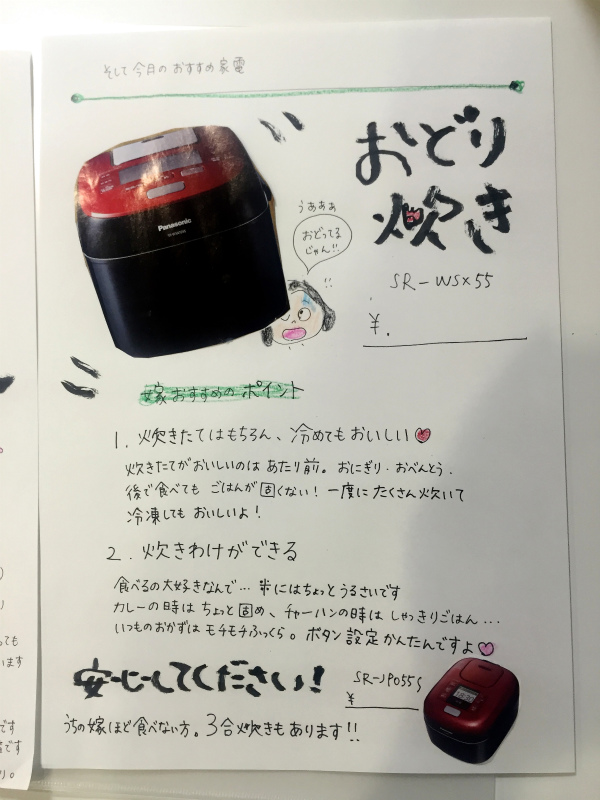 そして今日のおすすめ家電
Panasonic
おどり
炊き
うぁぁぁ
おどってる
じゃん!!
!!
SR-WSX55
¥.
嫁おすすめのポイント
1. 炊きたてはもちろん、冷めてもおいしい♥
炊きたてがおいしいのは あたり前。おにぎり・おべんとう・
後で食べても ごはんが固くない! 一度にたくさん炊いて
冷凍しても おいしいよ!
2. 炊きわけができる
食べるの大好きなんで… 米にはちょっとうるさいです
カレーの時は ちょっと固め、チャーハンの時は しゃっきりごはん…
いつものおかずは モチモチふっくら。ボタン設定かんたんですよ♡
安心してください!
SR-JP055S
¥
うちの嫁ほど食べない方。3合炊きもあります!!
っても
います
です
です
り。